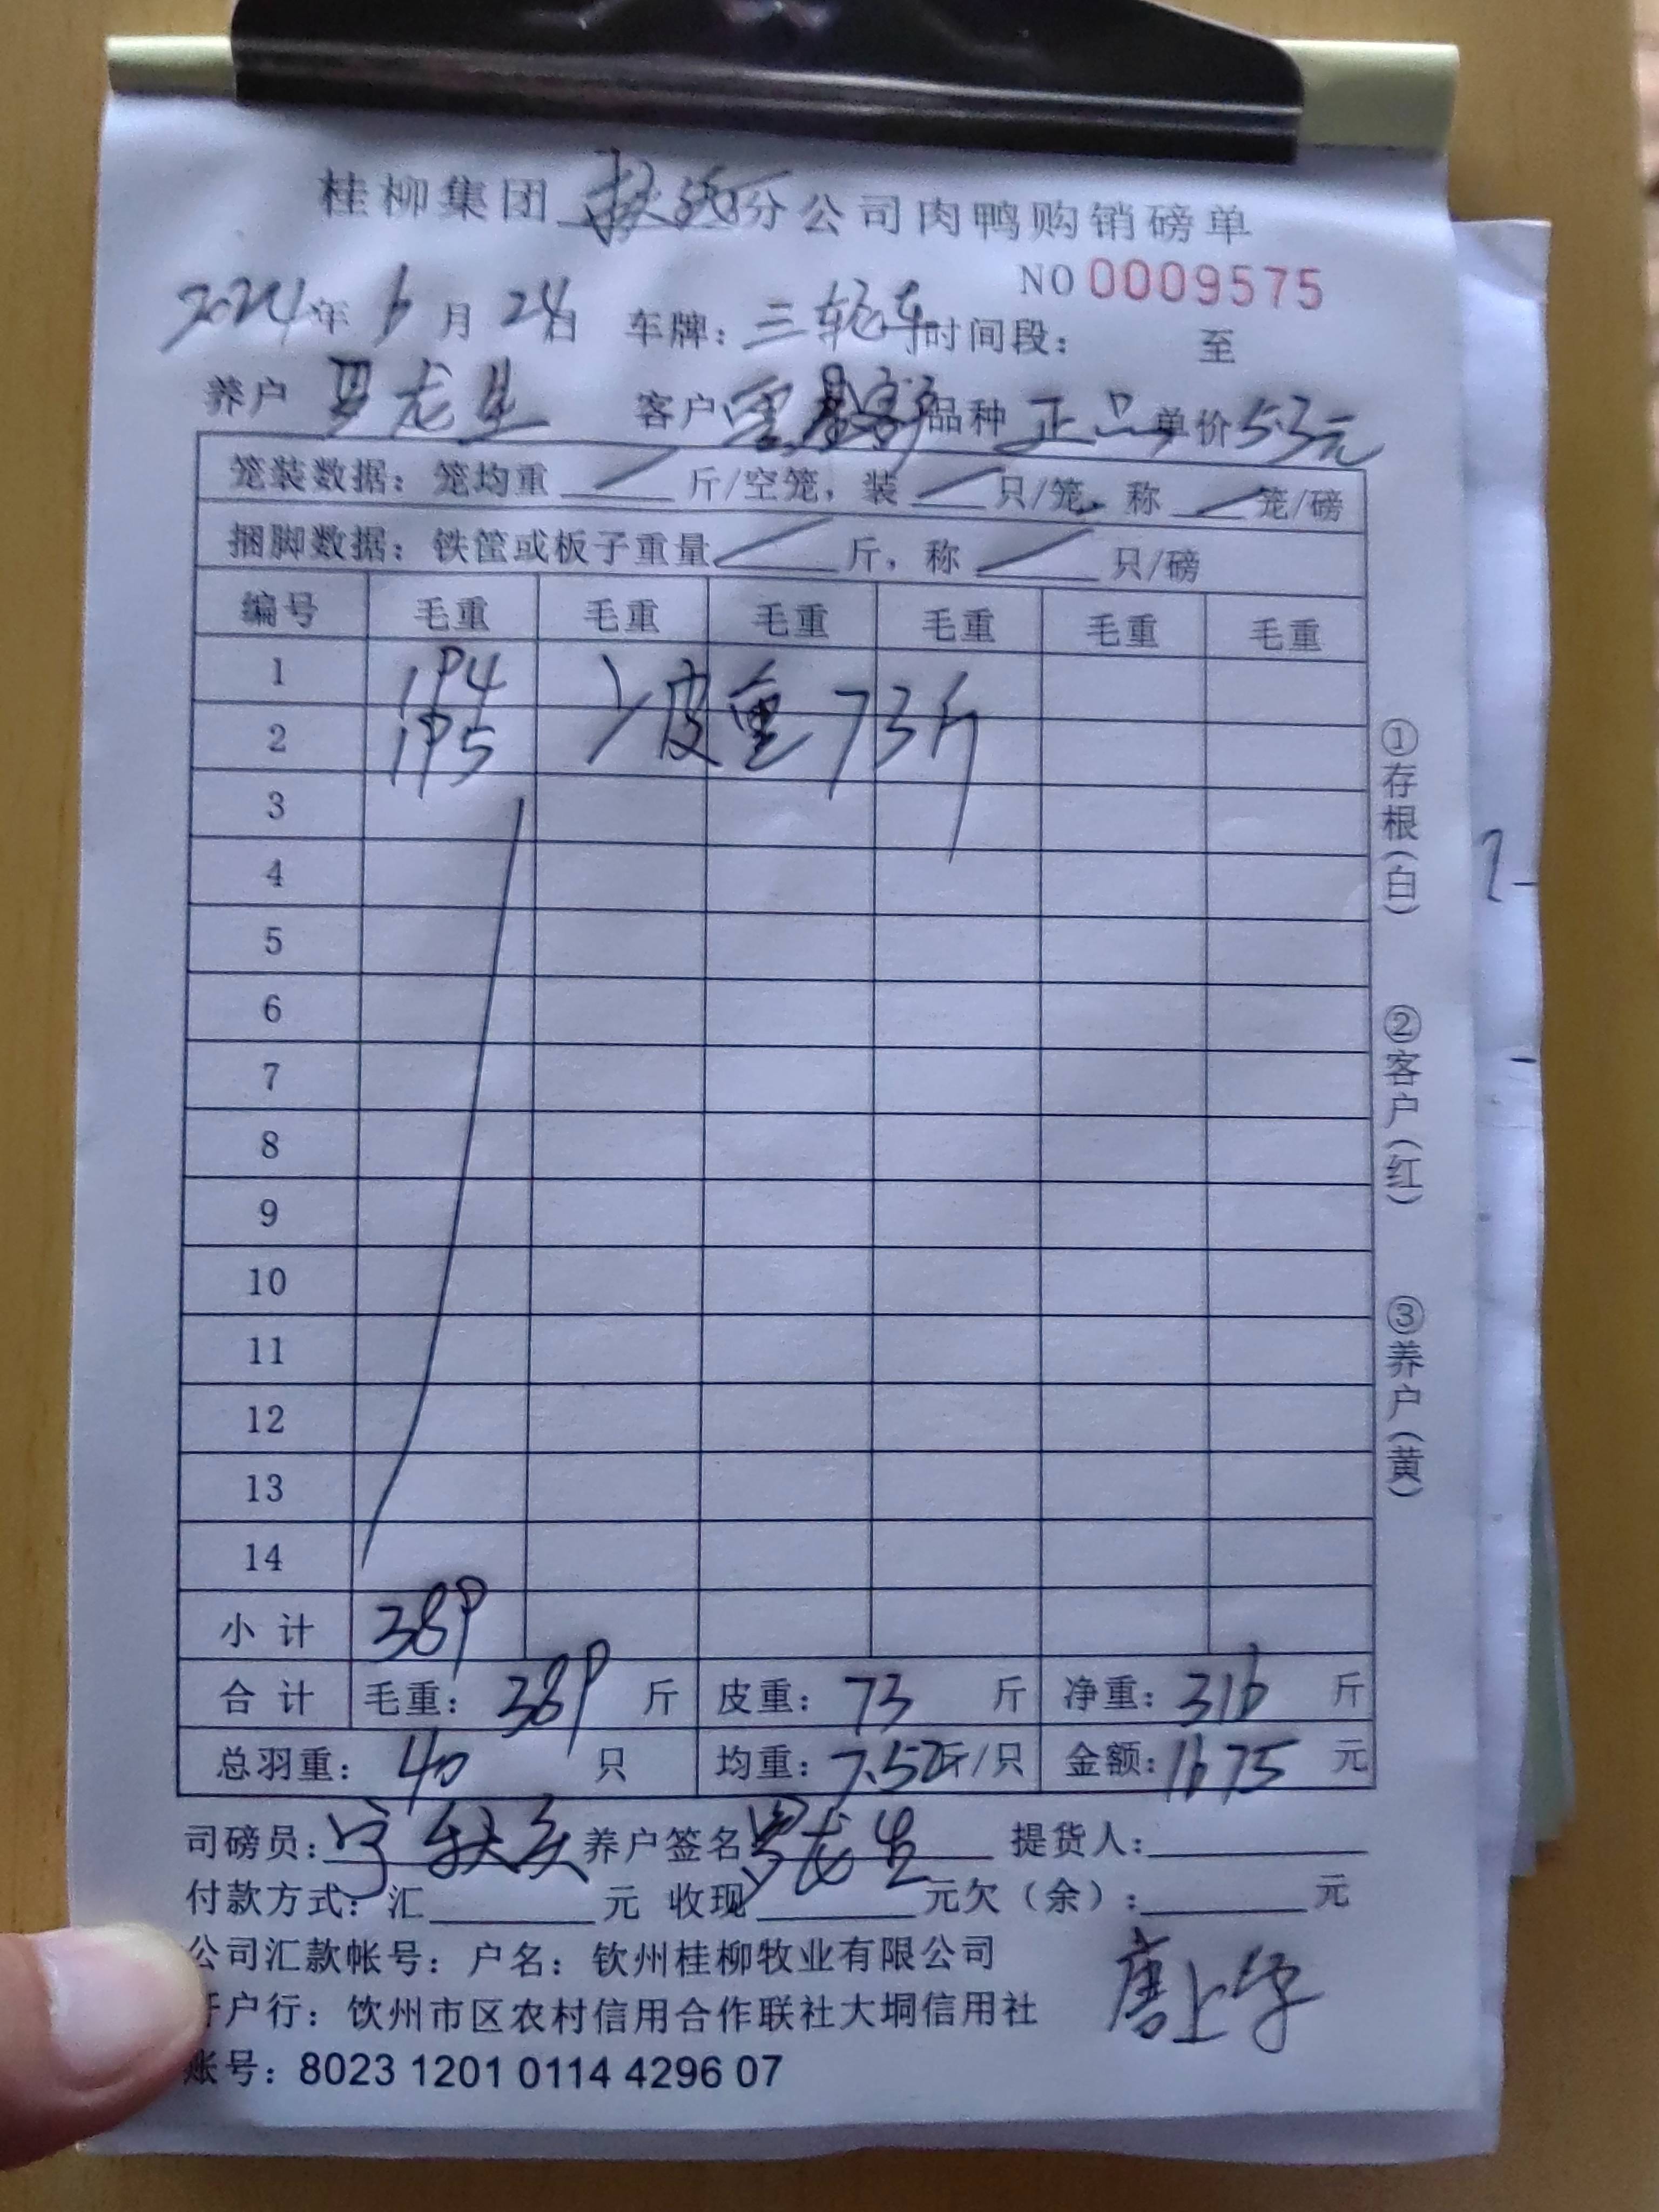 桂柳集团 分公司肉鸭购销磅单
NO 0009575
2024年 6月 24日 车牌：三轮车 时间段： 至
养户 罗龙生 客户 品种 正品 单价 5.3元
笼装数据：笼均重 斤/空笼，装 只/笼，称 笼/磅
捆脚数据：铁筐或板子重量 斤，称 只/磅
编号 毛重 毛重 毛重 毛重 毛重 毛重
1 194 皮重73斤
2 195
3
4
5
6
7
8
9
10
11
12
13
14
小计 389
合计 毛重：389 斤 皮重：73 斤 净重：316 斤
总羽重：40 只 均重：7.52斤/只 金额：1675 元
司磅员： 养户签名 罗龙生 提货人：
付款方式：汇 元 收现 元欠（余）： 元
公司汇款帐号：户名：钦州桂柳牧业有限公司
开户行：钦州市区农村信用合作联社大垌信用社
账号：8023 1201 0114 4296 07
①存根（白）
②客户（红）
③养户（黄）